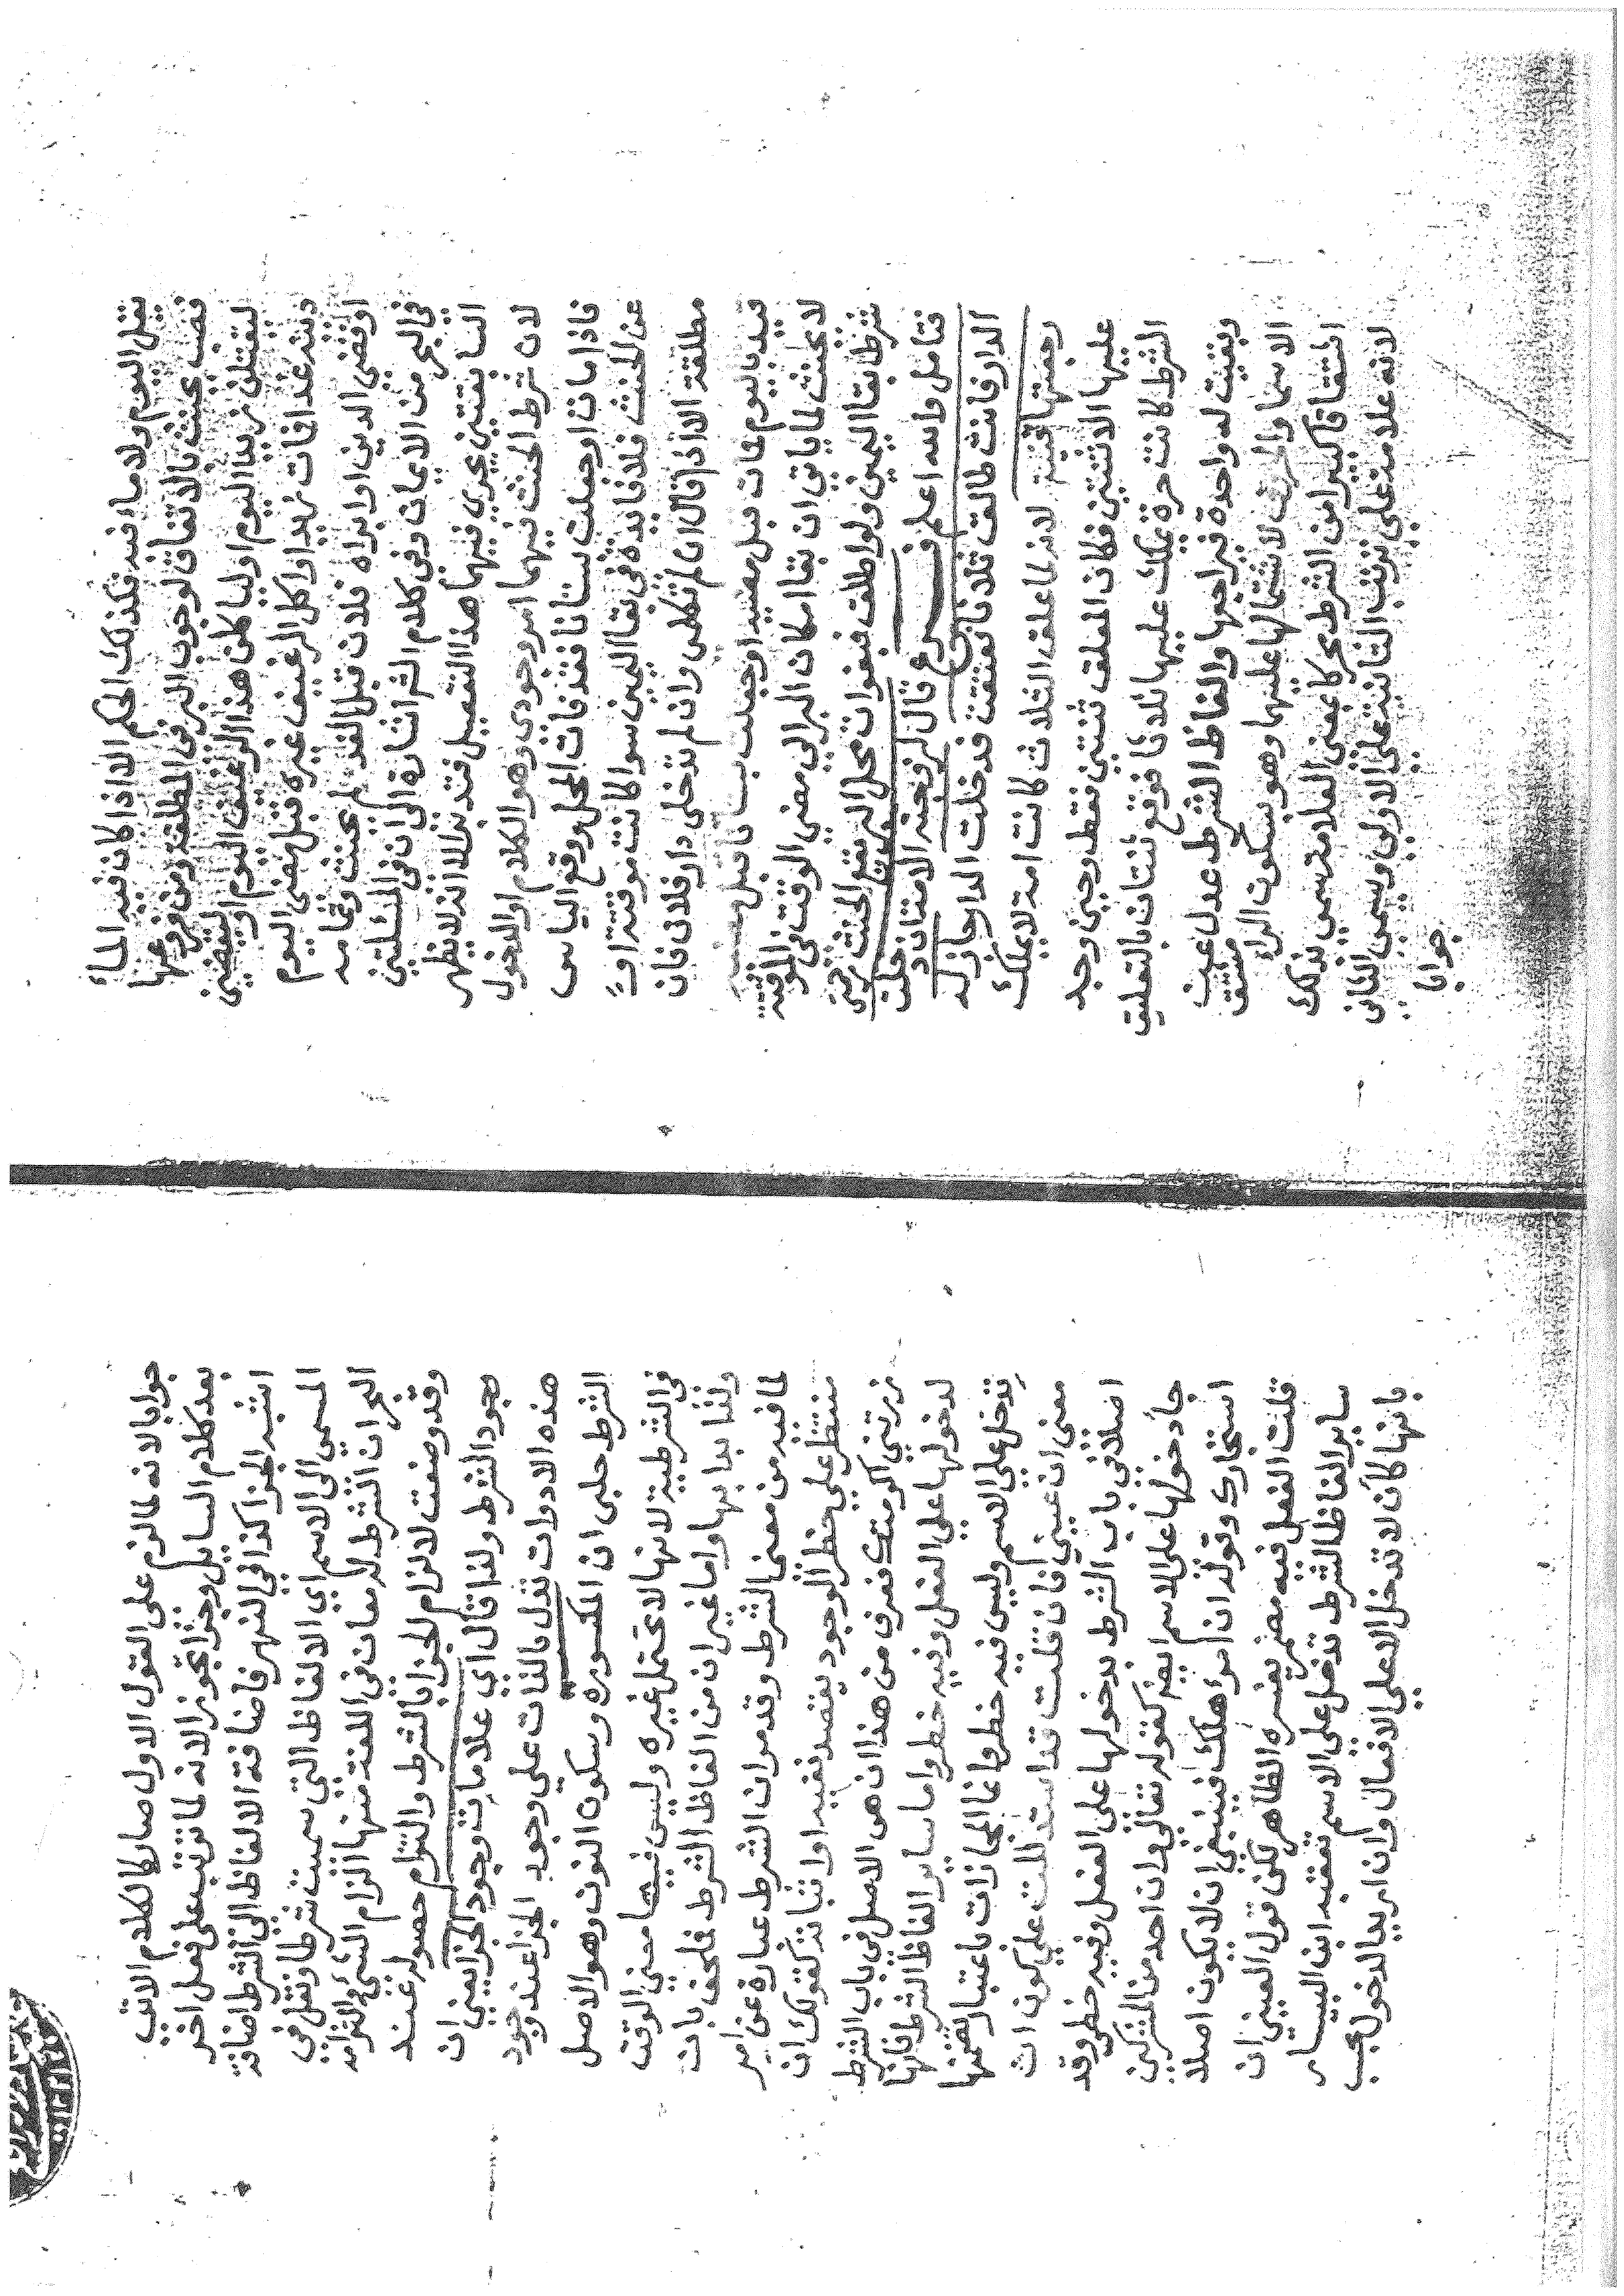 تقل اليوم ولا ما فيه فكذلك الحكم الا اذا كان فيه الماء
فصب يحنث بالاتفاق لوجوب البر في المطلقة ومن فروعها
ليقتلن زيدا اليوم او لياكلن هذا الرغيف اليوم او ليقضين
دينه غدا فمات زيد او اكل الرغيف غيره قبل مضي اليوم
او قضى الدين او ابراه فلان قبل الغد لم يحنث وتمامه
في البحر من الايمان وفي كلام الشر اشارة الى ان في المسئلتين
السابقتين يجري فيهما هذا التفصيل فتدبر الا انه لا يظهر
لان شرط الحنث فيهما امر وجودي وهو الكلام او الدخول
فاذا مات او جعلت بستانا فقد فات المحل ووقع الياس
عن الحنث فلا فايدة في بقا اليمين سوا كانت موقتة او
مطلقة الا اذا قال ان لم تكلمي وان لم تدخلي دار فلان فان
قيد باليوم فمات قبل مضيه او جعلت بستانا قبل
لا يحنث لما ياتي ان بقا امكان البر الى مضي الوقت في الموقتة
شرط بقا اليمين ولو اطلق فبفوات محل البر الحنث
فتامل والله اعلم فروع قال لزوجته الامة ان دخلت
الدار فانت طالق ثلاثا فعتقت فدخلت الدار جاز له
رجعتها قنية لانه لما علق الثلاث كانت امة لا يملك
عليها الا ثنتين فكان المعلق ثنتين فقط وحين وجد
الشرط كانت حرة يملك عليها ثلاثا فوقع ثنتان بالتعليق
وبقيت له واحدة فيراجعها والفاظ الشرط عدل عن
الاسما والحرف لاشتمالها عليهما وهو بسكون الراء مشتق
اشتقاقا كبيرا من الشرط محركا بمعنى العلامة سمي بذلك
لانه علامة على ترتب الثانية على الاولى ويسمى الثاني
جوابا
جوابا لانه لما لزم على القول الاول صار كالكلام الاتي
بعد كلام السايل وجزا تجوزا لانه لما ترتب على فعل اخر
اشبه الجزا كذا في النهر فاضافة الالفاظ الى الشرط اضافة
المسمى الى الاسم اي الالفاظ التي سميت شرطا ونقل في
البحر ان الشرط له معان في اللغة منها الزام الشيء والتزامه
وقد وضعت لالزام الجزا بالشرط والتزام حصوله عند
وجود الشرط ولذا قال اي علامات وجود الجزا يعني ان
هذه الادوات تدل بالذات على وجود الجزا عند وجود
الشرط حلبى ان المكسورة وسكون النون وهو الاصل
في الشرطية لانها لا تحتمل غيره وليس فيها معنى الوقت
ولذا بدا بها واما غير ان من الفاظ الشرط فلحق بان
لما فيه من معنى الشرط وقد مر ان الشرط عبارة عن امر
منتظر على خطر الوجود يقصد نفيه او اثباته كقولك ان
زرتني اكرمتك فعرف من هذا ان هي الاصل في باب الشرط
لدخولها على الفعل وفيه خطر واما ساير الفاظ الشرط فانها
تدخل على الاسم وليس فيه خطر وانما المجازات باعتبار تضمنها
معنى ان عيني فان قلت قد استدللت على كون ان
اصلا في باب الشرط بدخولها على الفعل وفيه خطر وقد
جاء دخولها على الاسم ايضا كقوله تعالى وان احد من المشركين
استجارك وقوله ان امرؤ هلك فينبغي ان لا يكون اصلا
قلت الفعل فيه مضمر يفسره الظاهر لكن قول العيني ان
ساير الفاظ الشرط تدخل على الاسم تعقبه ابن
بانها كان لا تدخل الا على الافعال وان اريد الدخول بحسب